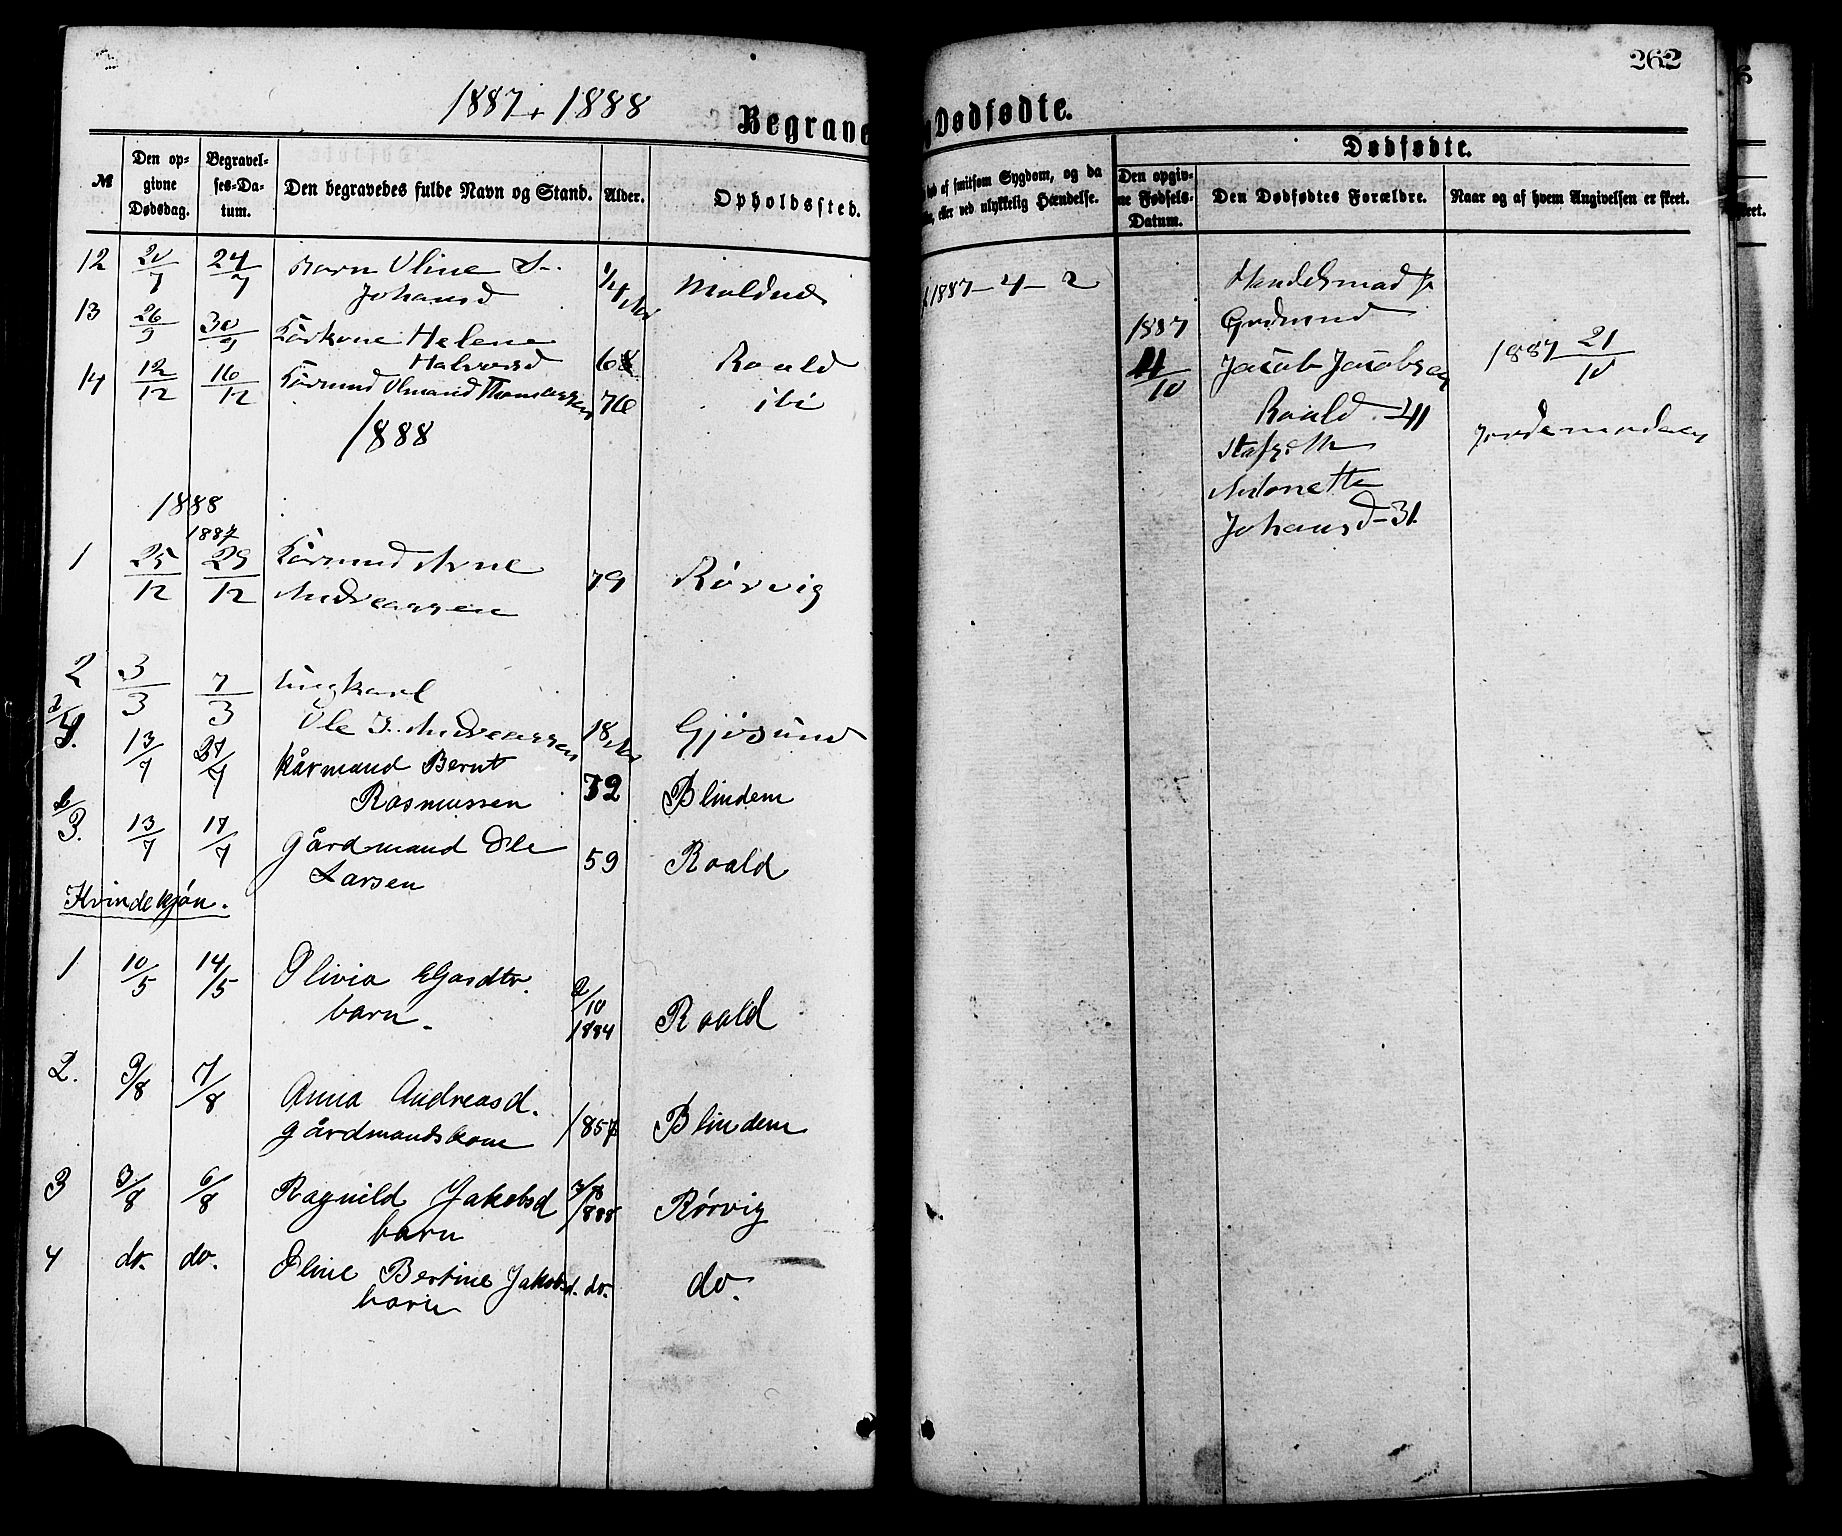 262
1887 + 1888
Begrave
Dødfødte.
№
Den op-
givne
Dødsdag.
Begravel-
ses-Da-
tum.
Den begravedes fulde Navn og Stand.
Alder.
Opholdssted.
12 20/7 24/7 Barn Oline
Johansd 1/4
13 26/9 30/9 Kårkone Helene
Halvorsd 68 Roald
14 12/12 16/12 Kårmand Thomassen 76 ibi
1888
1888
1887
1 25/12 29/12 Kårmand Arne
Andreassen 79 Rørvig
2 3/3 7/3 Ungkarl
Ole J. Andreassen 18 Gjøsund
13/7 kårmand Bernt
Rasmussen 72 Blindem
3. 13/7 17/7 gårdmand Ole
Larsen 59 Roald
Kvindekjøn.
1 10/5 14/5 Olivia
barn. 2/10
1884 Roald
2. 3/8 7/8 Anna Andreasd.
gårdmandskone 1857 Blindem
3 3/8 6/8 Ragnild Jakobsd
barn 3/8
1888 Rørvig
4 do. do. Oline Bertine Jakobsd. do. do.
barn
af smitsom Sygdom, og da
eller ved ulykkelig Hændelse.
1887 - 4 - 2
Dødfødte.
Den opgiv-
ne Fødsels-
Datum.
Den Dødfødtes Forældre.
Naar og af hvem Angivelsen er skeet.
1887
4/10
Gudmund
Jacob Jacobsen
Roald - 41
Antonette
Johansd - 31.
1887 21/10